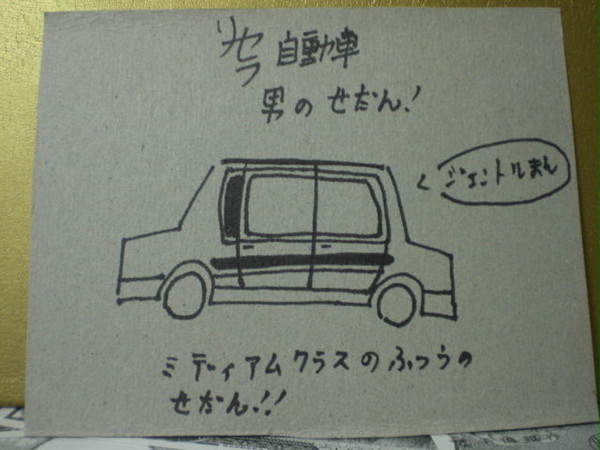 自動車
男のせだん!
ジェントルまん
ミディアムクラスのふつうの
せだん!!